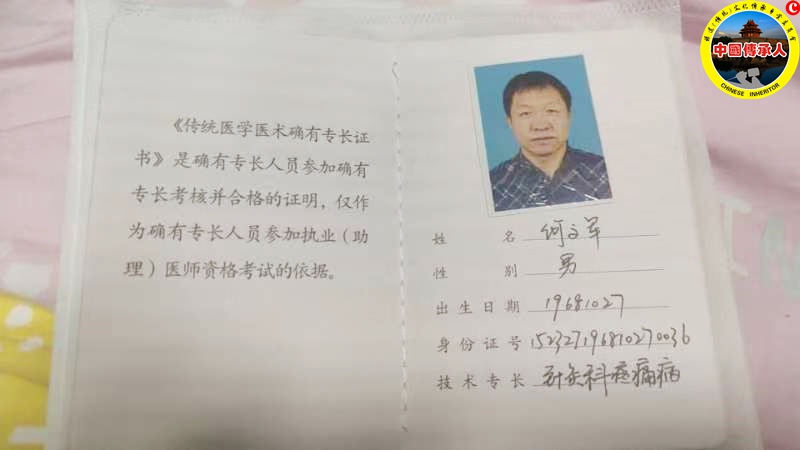 《传统医学医术确有专长证
书》是确有专长人员参加确有
专长考核并合格的证明，仅作
为确有专长人员参加执业（助
理）医师资格考试的依据。
姓 名 何文军
性 别 男
出生日期 19681027
身份证号 152327196810270036
技术专长 针灸科疼痛病
中國傳承人
CHINESE INHERITOR
C